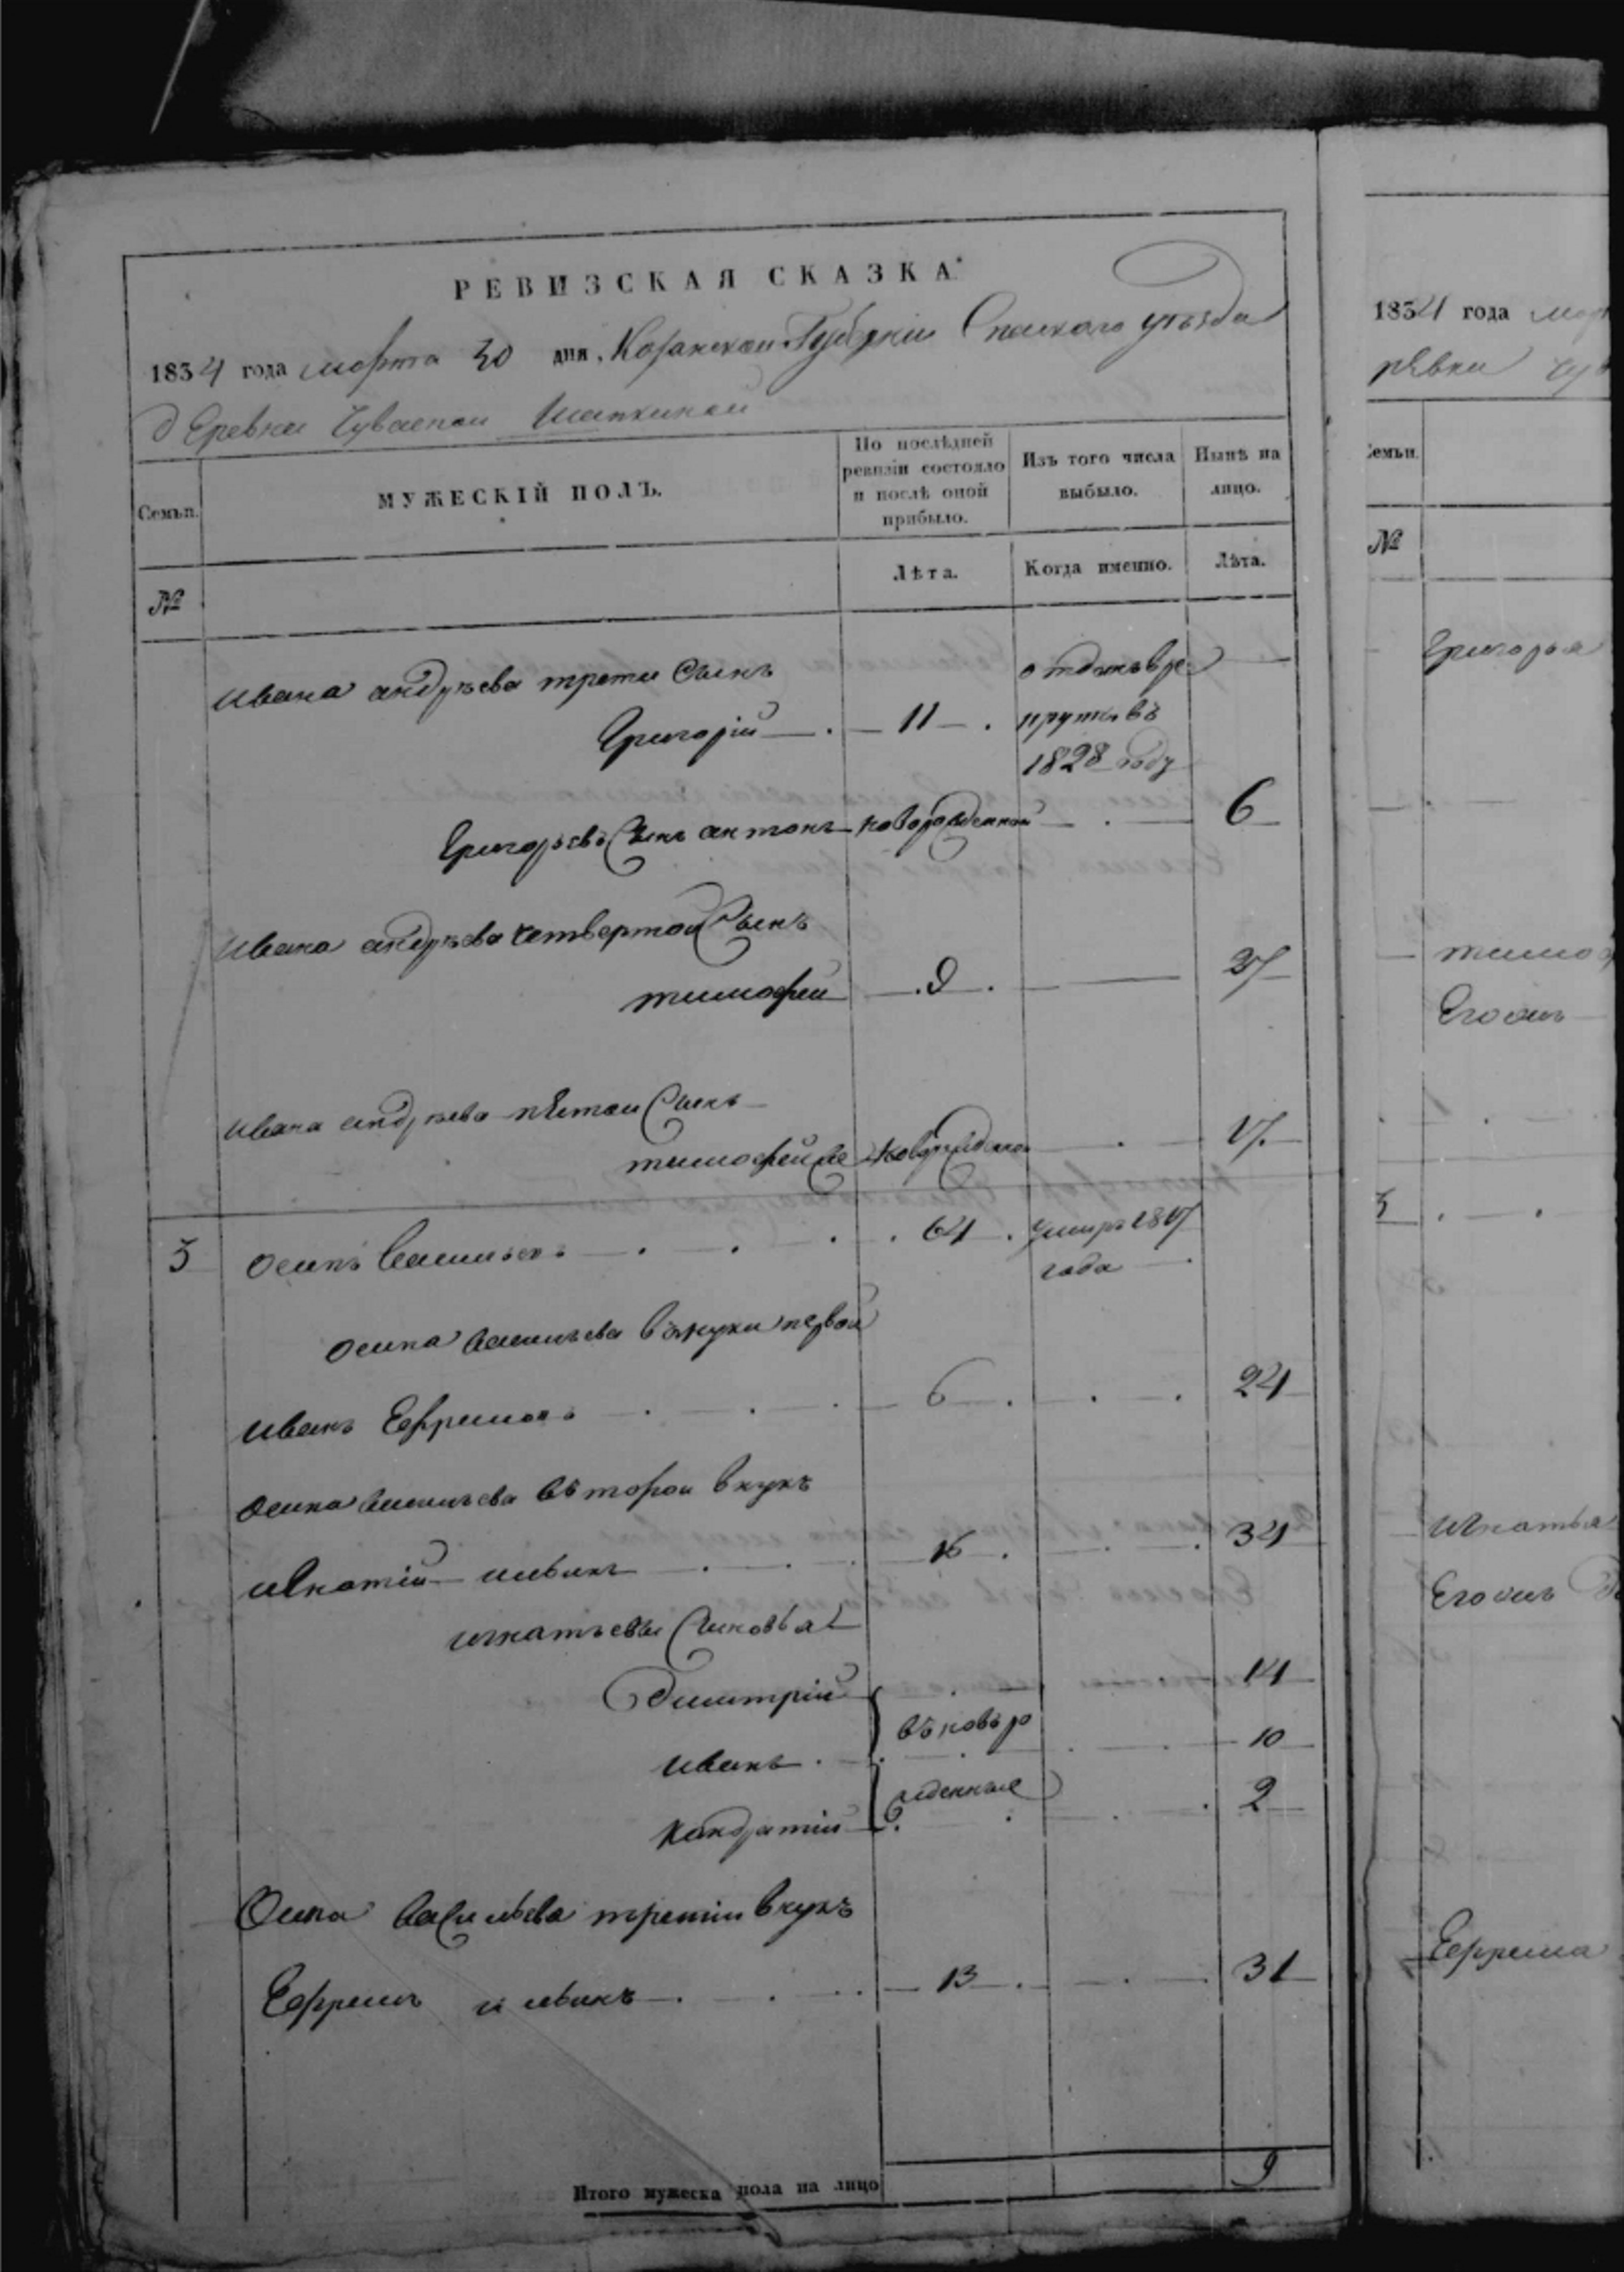 РЕВИЗСКАЯ СКАЗКА.
1834 года марта 30 дня, Казанской Губернии Спаского уезда
деревни Чуваской Шапкиной
Семьи.
МУЖЕСКІЙ ПОЛЪ.
По послѣдней ревизіи состояло и послѣ оной прибыло.
Изъ того числа выбыло.
Нынѣ на лицо.
№
Лѣта.
Когда именно.
Лѣта.
Ивана андреева трети Сынъ
Григорій 11 отданъ в ре
круты въ
1828 году
Григорьевъ Сынъ антонъ новорожденной 6
Ивана андреева четвертой Сынъ
тимофей 9 27
Ивана андреева пятой Сынъ
тимофей же новорожденой 17
5 Осипъ Васильевъ 64 Умиръ 1817
года
Осипа Васильева внуки первой
Иванъ Ефремовъ 6 24
Осипа Васильева второй внукъ
Игнатій 16 34
игнатьевы Сыновья
Димитрій 14
Иванъ въновъро 10
Кондратій жденные 2
Осипа Васильева третіи внукъ
Ефремъ 13 31
Итого мужеска пола на лицо 9
1834 года мар
ревни чув
Семьи.
№
Григорья
тимоф
Егоже
5
Игнатья
Егоже
Ефрема